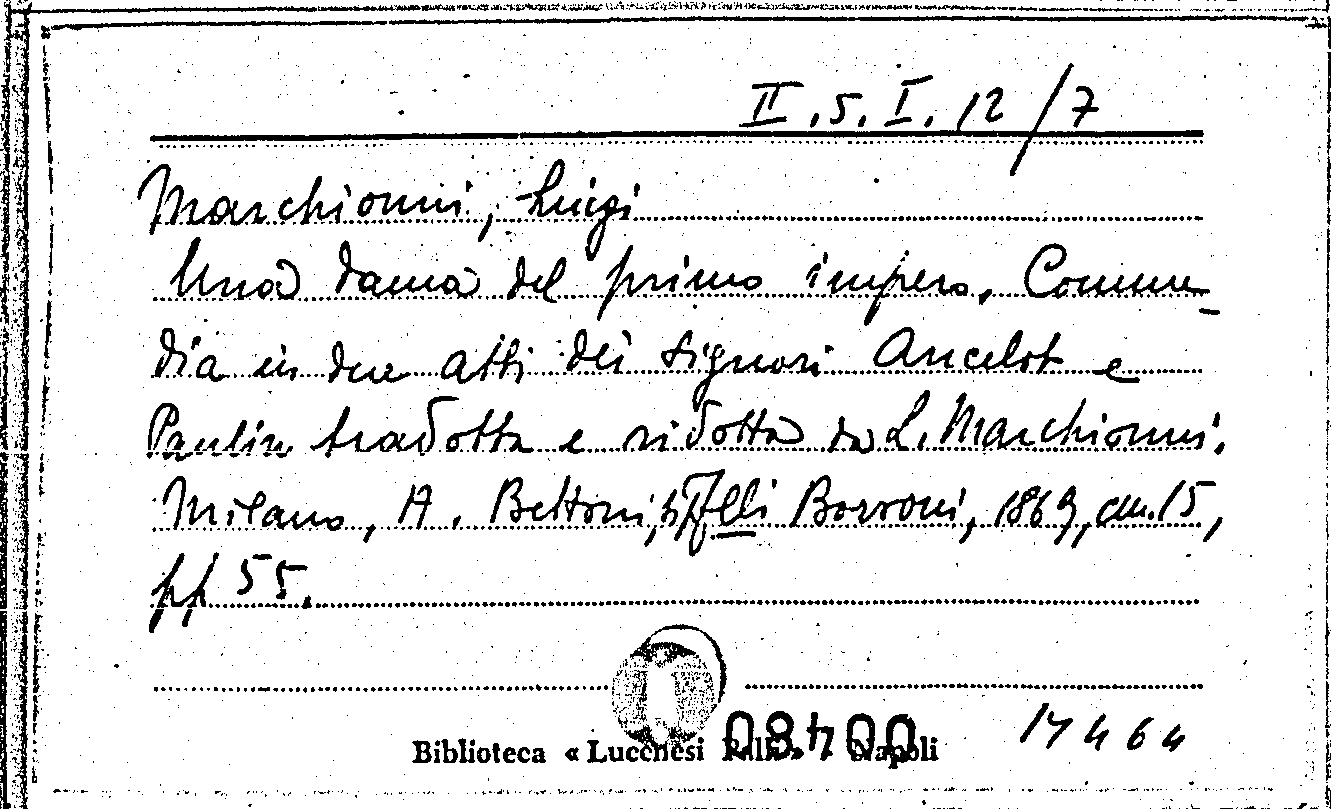 II.5.I.12/7
Marchionni, Luigi
Una dama del primo impero. Comme-
dia in due atti dei signori Ancelot e
Paulin tradotta e ridotta da L. Marchionni.
Milano, A. Bettoni, t. F.lli Borroni, 1869, cm. 15,
pp 55.
Biblioteca « Lucchesi Palli » / Napoli
17464